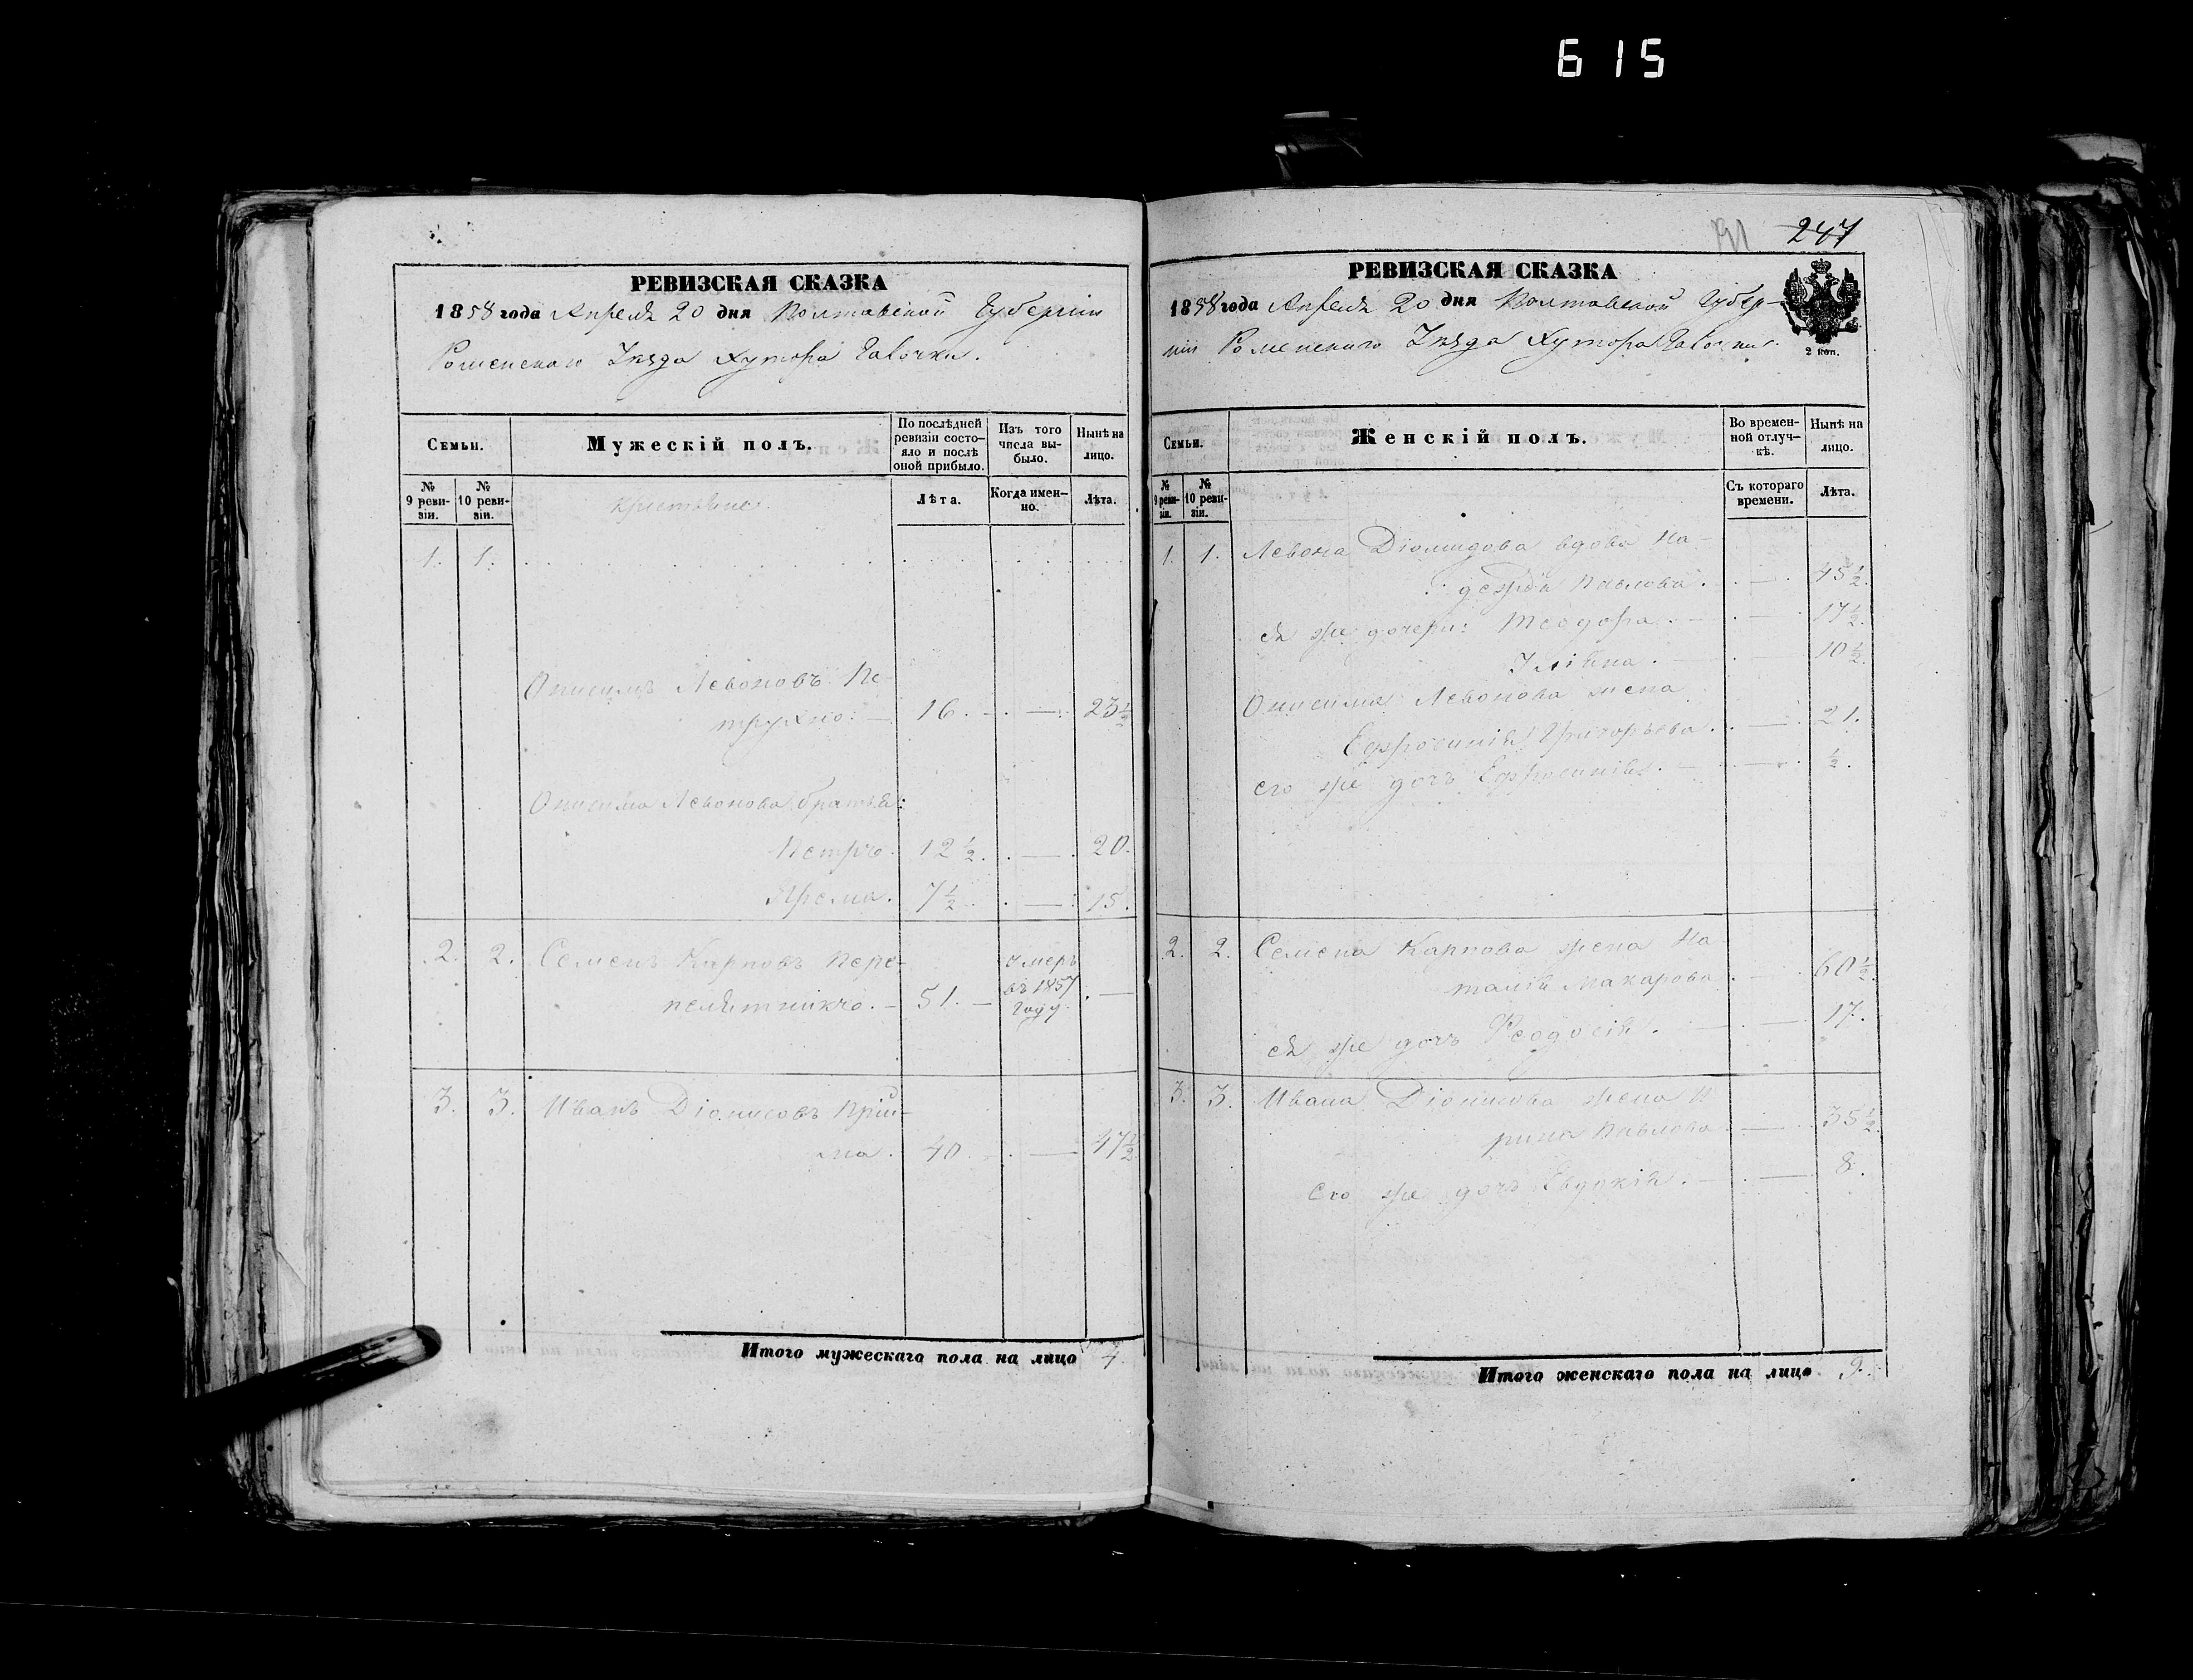 615
РЕВИЗСКАЯ СКАЗКА
1858 года Апреля 20 дня Полтавской Губернии
Роменскаго Уезда Хутора Галочки.
Семьи.
Мужескій полъ.
По послѣдней
ревизіи состо-
яло и послѣ
оной прибыло.
Изъ того
числа вы-
было.
Нынѣ на
лицо.
№
9 реви-
зіи.
№
10 реви-
зіи.
Лѣта.
Когда имен-
но.
Лѣта.
1. 1.
Онисимъ Левоновъ Пе-
трухно. 16. — 23½
Онисима Левонова братья:
Петро. 12½. — 20.
Ярема. 7½. — 15.
2. 2. Семенъ Карповъ Пере-
пелятникъ. 51. — умеръ
въ 1857
году. —
3. 3. Иванъ Діонисовъ Прій-
ма. 40. — 47½
Итого мужескаго пола на лицо 4.
247
РЕВИЗСКАЯ СКАЗКА
1858 года Апреля 20 дня Полтавской Губер-
ніи Роменскаго Уезда Хутора Галочки.
2 коп.
Семьи.
Женскій полъ.
Во времен-
ной отлуч-
кѣ.
Нынѣ на
лицо.
№
9 реви-
зіи.
№
10 реви-
зіи.
Съ котораго
времени.
Лѣта.
1. 1. Левона Діомидова вдова На-
дежда Павлова. — 45½.
ея же дочери: Теодора. — 17½.
10½.
Онисима Левонова жена
Ефросинія Григорьева. — 21.
его же дочь Ефросинія. — ½.
2. 2. Семена Карпова жена На-
талія Макарова. — 60½.
ея же дочь Феодосія. — 17.
3. 3. Ивана Діонисова жена И-
рина Павлова — 35½.
Его же дочь Явдокія. — 8.
Итого женскаго пола на лицо 9.